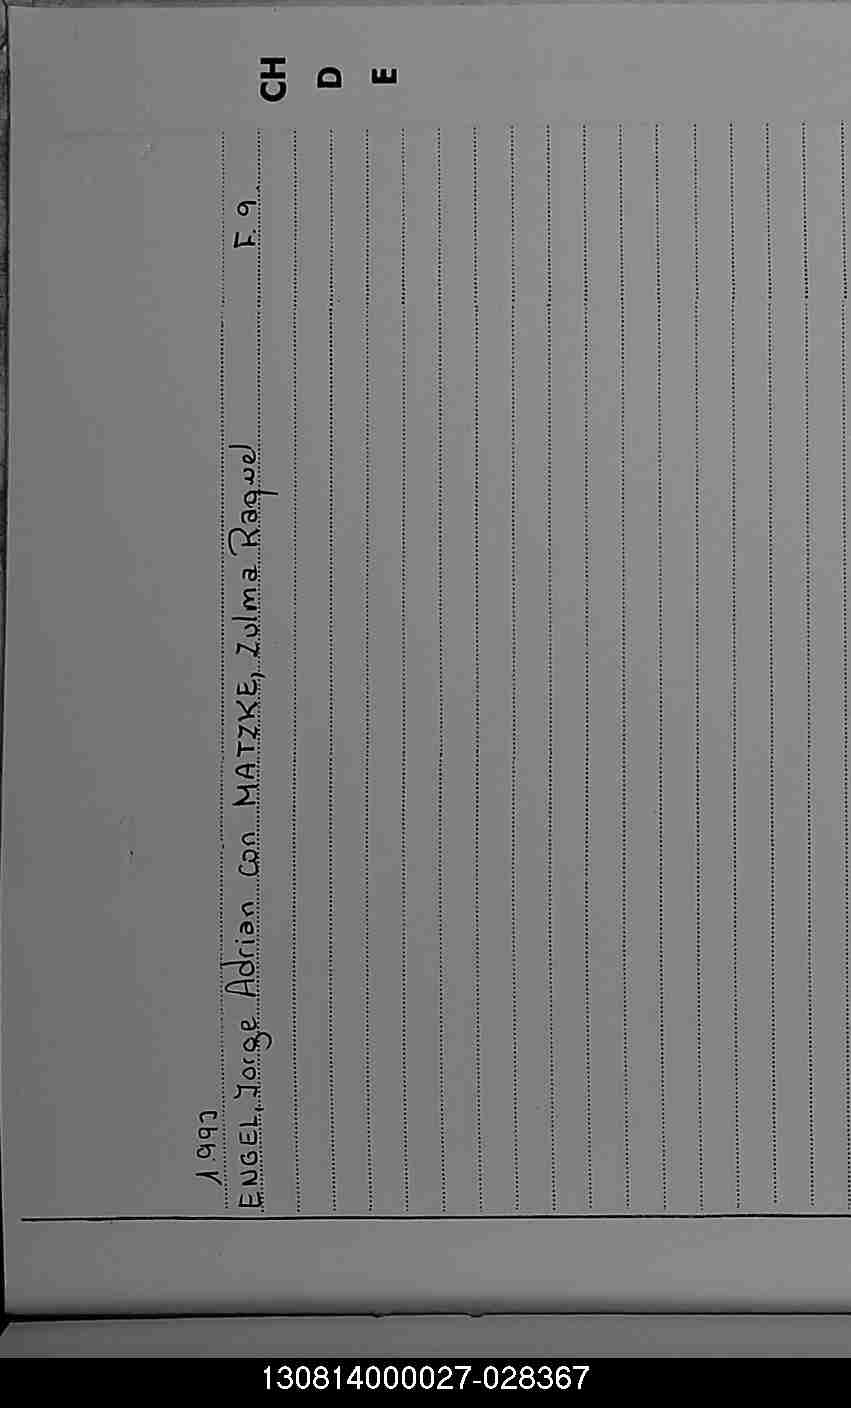 CH
D
E
1.990
ENGEL, Jorge Adrian con MATZKE, Zulma Raquel F. 9
130814000027-028367